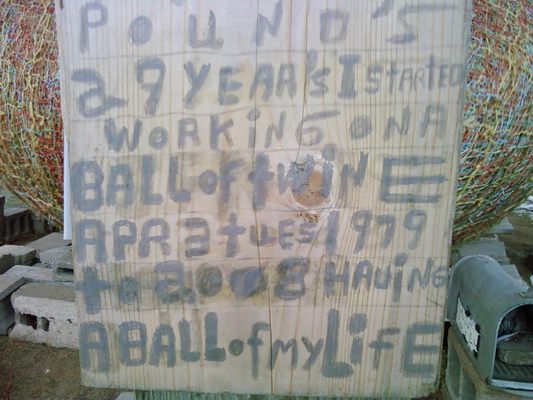 POUND'S
29 YEAR'S I STARTED
WORKING ON A
BALL oF tWiNE
APR 3 tUES 1979
to 2008 HAViNG
A BALL oF my LiFE